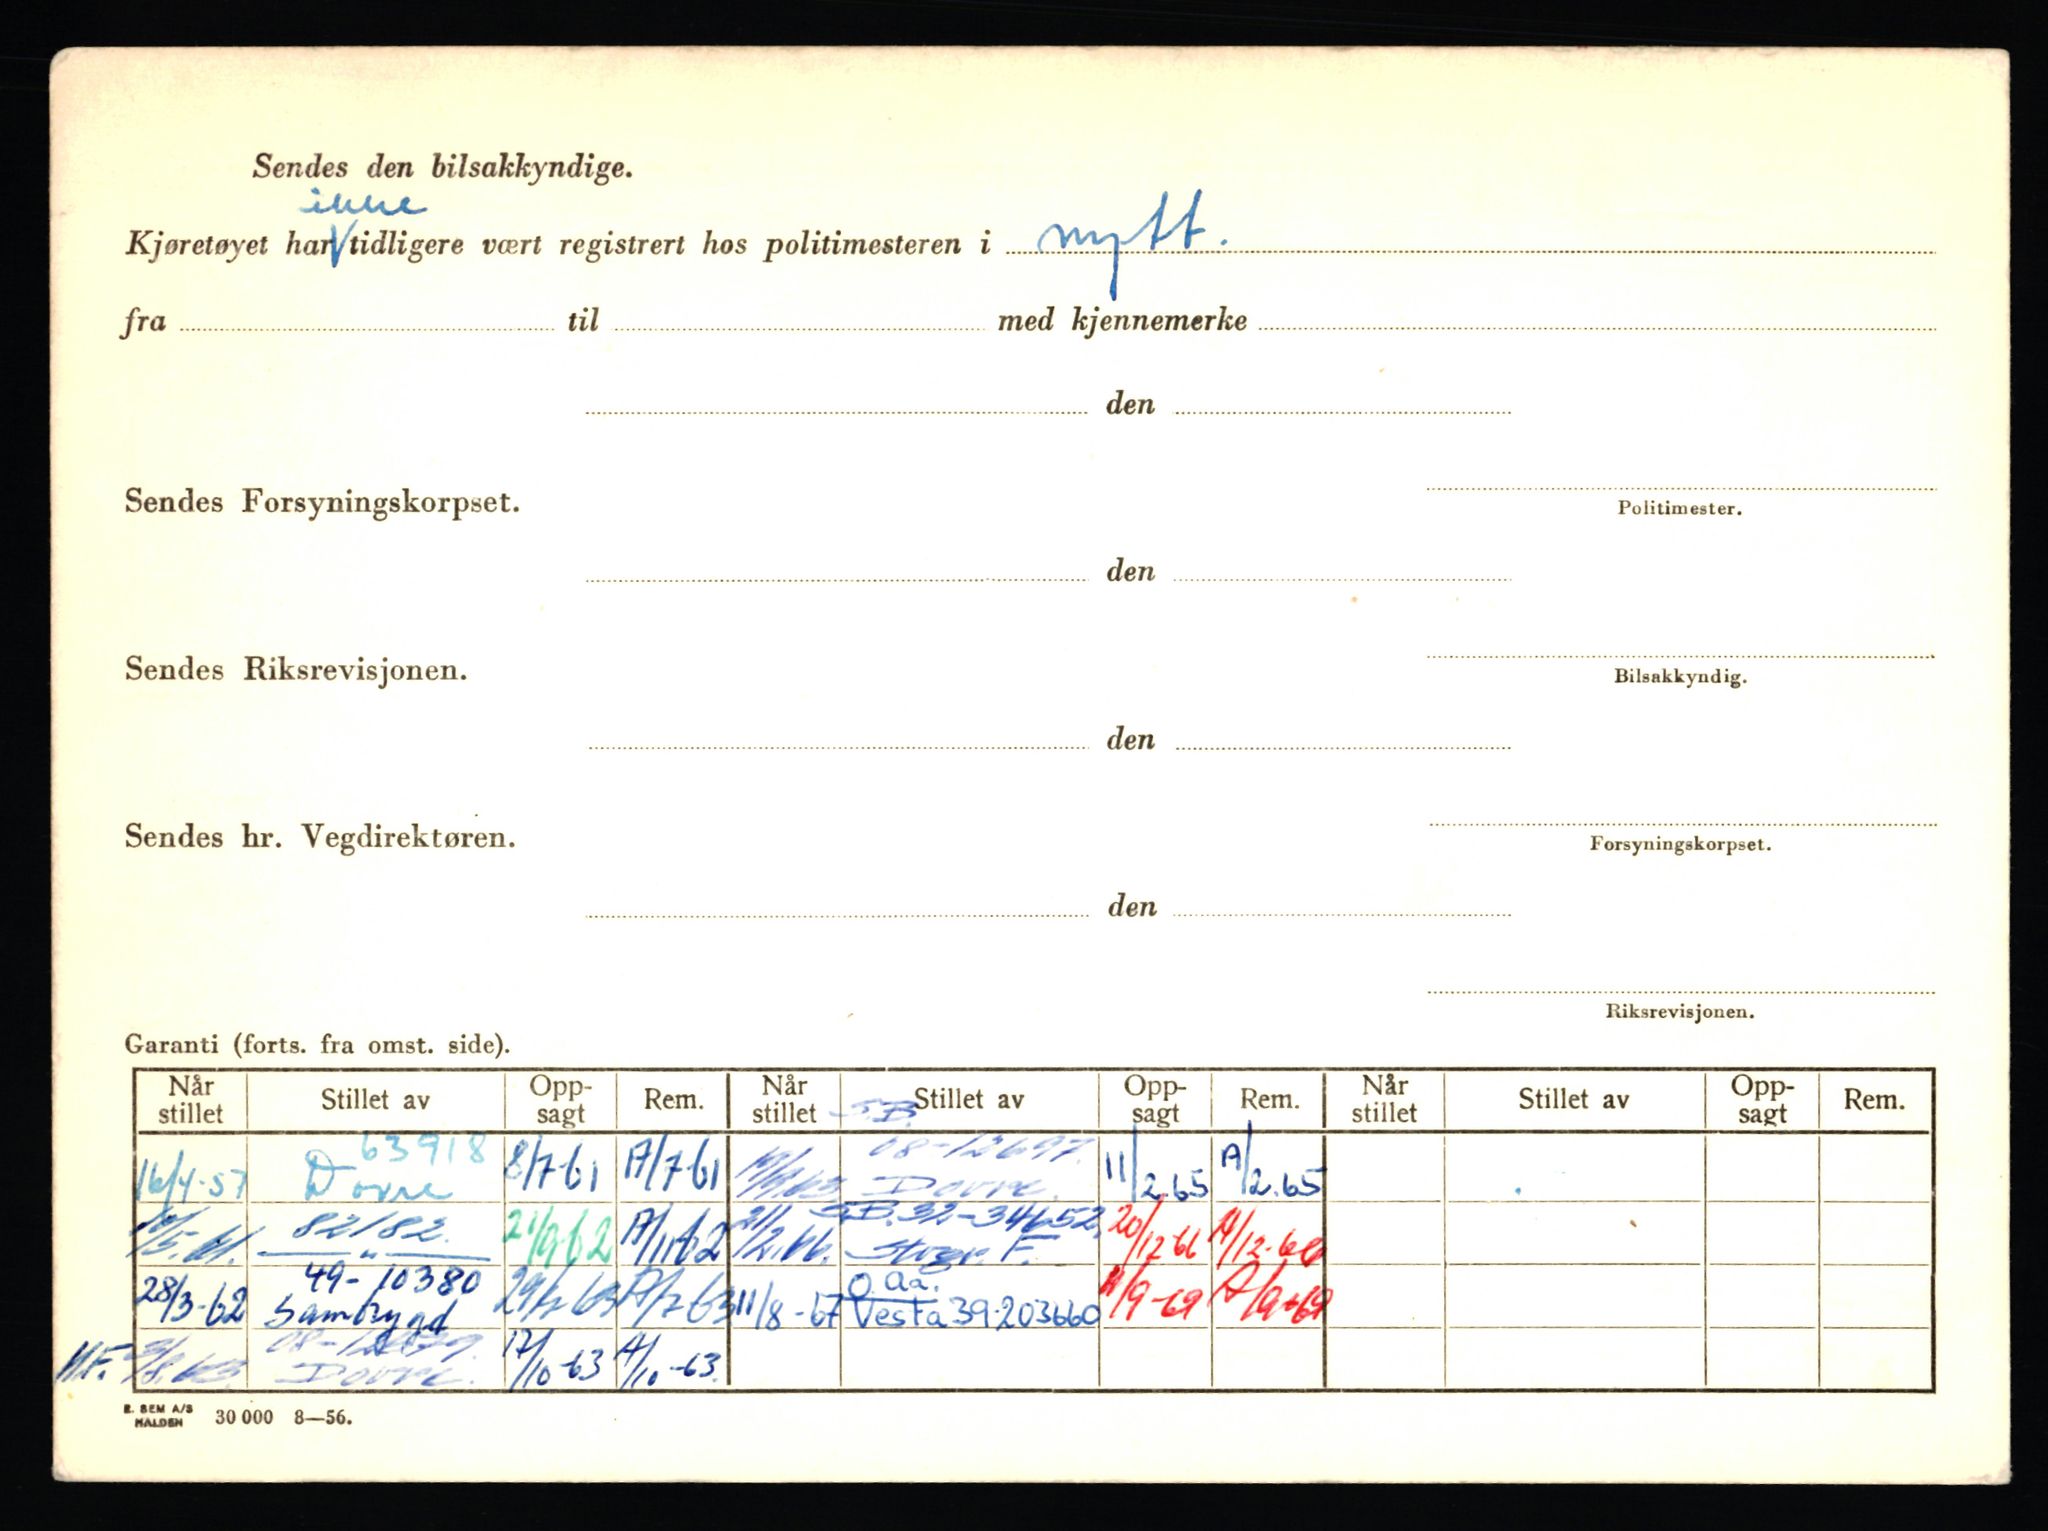 Sendes den bilsakkyndige.
ikke
Kjøretøyet har tidligere vært registrert hos politimesteren i nytt.
fra til med kjennemerke
den
Sendes Forsyningskorpset.
Politimester.
den
Sendes Riksrevisjonen.
Bilsakkyndig.
den
Sendes hr. Vegdirektøren.
Forsyningskorpset.
den
Riksrevisjonen.
Garanti (forts. fra omst. side).
Når stillet Stillet av Opp-sagt Rem. Når stillet Stillet av Opp-sagt Rem. Når stillet Stillet av Opp-sagt Rem.
63918
16/4-57 Dovre 8/7-61 A/7-61
82182. 21/9-62 A/11-62
49-10380
28/3-62 Sambygd 29/7-63 A/7-63
Dovre. 17/10-63 A/10-63.
S.B.
08-12697.
Dovre. 11/2.65 A/2.65
S.B. 32-34652.
20/12-66 A/12-66
O.Aa.
11/8-67 Vesta 39-203660 11/9-69 A/9-69
E. SEM A/S
HALDEN 30 000 8—56.